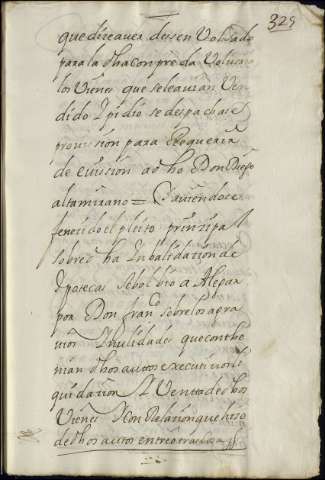 329
que dize aver desenvolsado
para la dha compreda
los Vienes que se le avian Ven
dido I pidio se despachase
provission para Requeria
de evission al dho Don Diego
altamirano = I aviendose
fenecido el pleito prinzipal
sobre dha Inbalidazion de
Ipotecas se bolbio a Alegar
por Don franco sobre los agra
vios I nulidades que conthe
nian dhos autos executivos li
quidazion I Venta de dhos
Vienes I con Relazion que hiso
de dhos autos entre otras